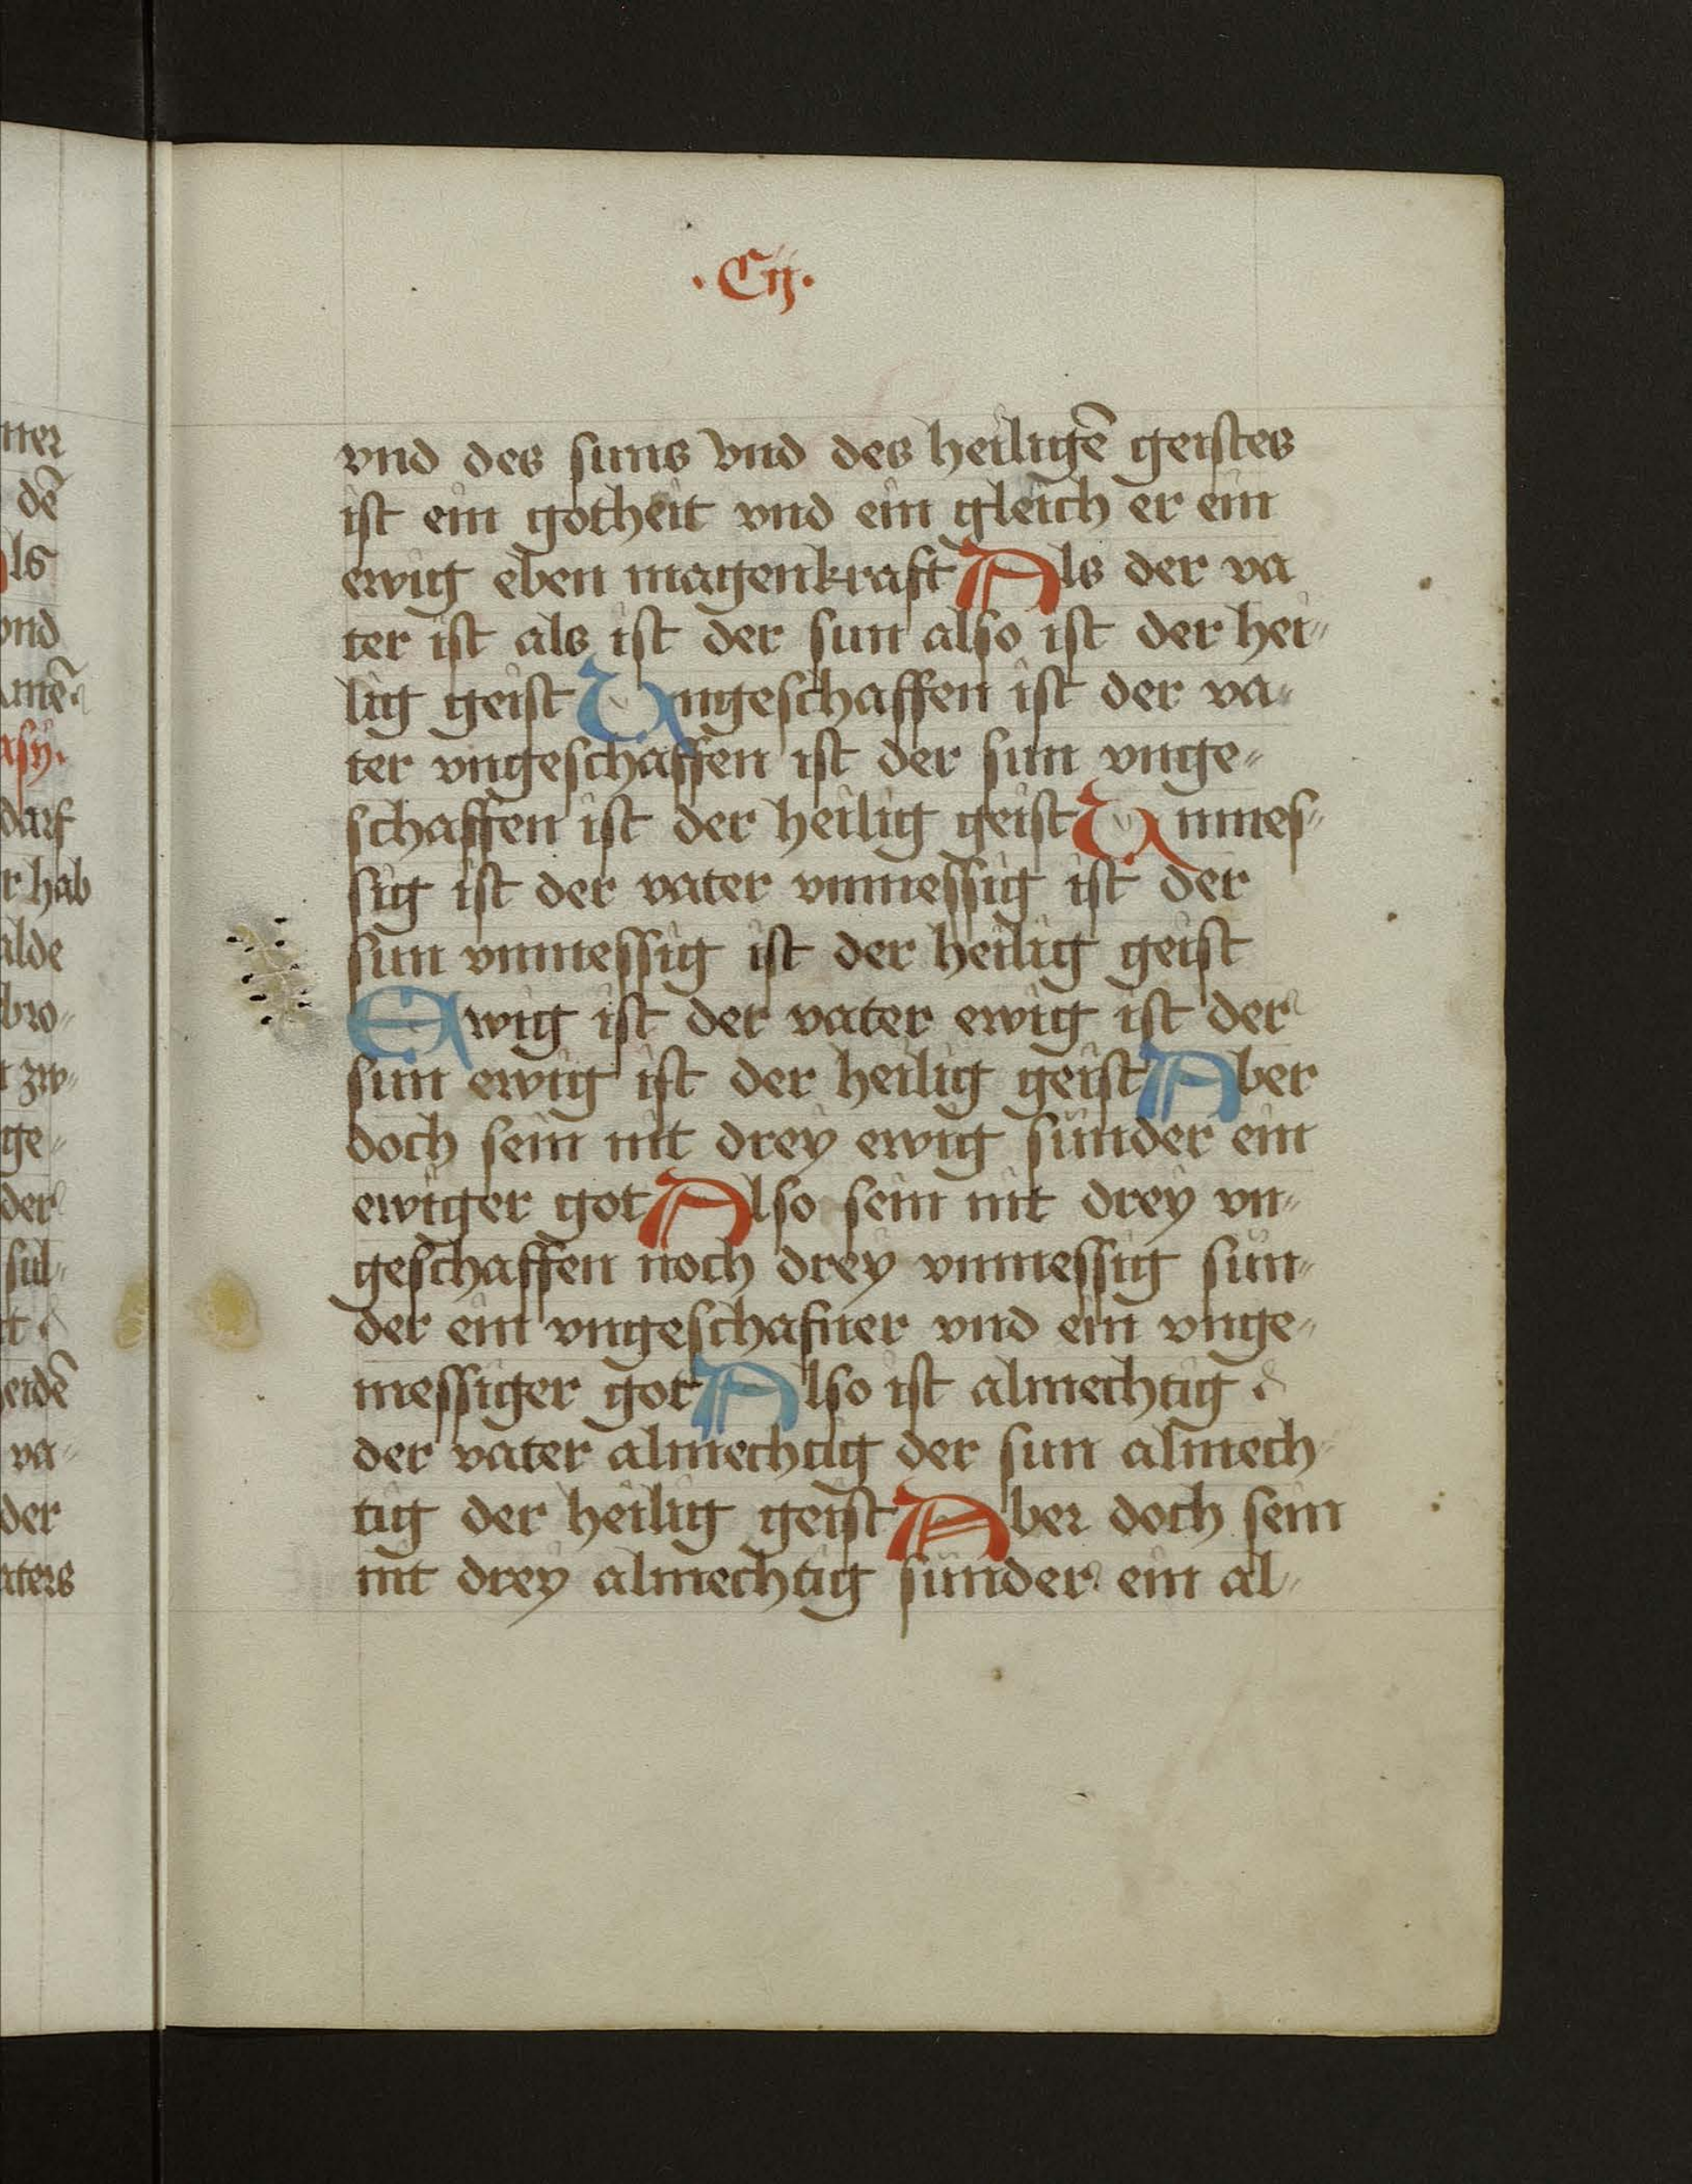 ·Cij·
vnd des suns vnd des heiligē geistes
ist ein gotheit vnd ein gleich er ein
ewig eben magenkraft Als der va
ter ist als ist der sun also ist der hei„
lig geist Vngeschaffen ist der va„
ter vngeschaffen ist der sun vnge„
schaffen ist der heilig geist Vnmes„
sig ist der vater vnmessig ist der
sun vnmessig ist der heilig geist
Ewig ist der vater ewig ist der
sun ewig ist der heilig geist Aber
doch sein nit drey ewig sunder ein
ewiger got Also sein nit drey vn„
geschaffen noch drey vnmessig sun„
der ein vngeschafner vnd ein vnge„
messiger got Also ist almechtig
der vater almechtig der sun almech„
tig der heilig geist Aber doch sein
nit drey almechtig sunder ein al„